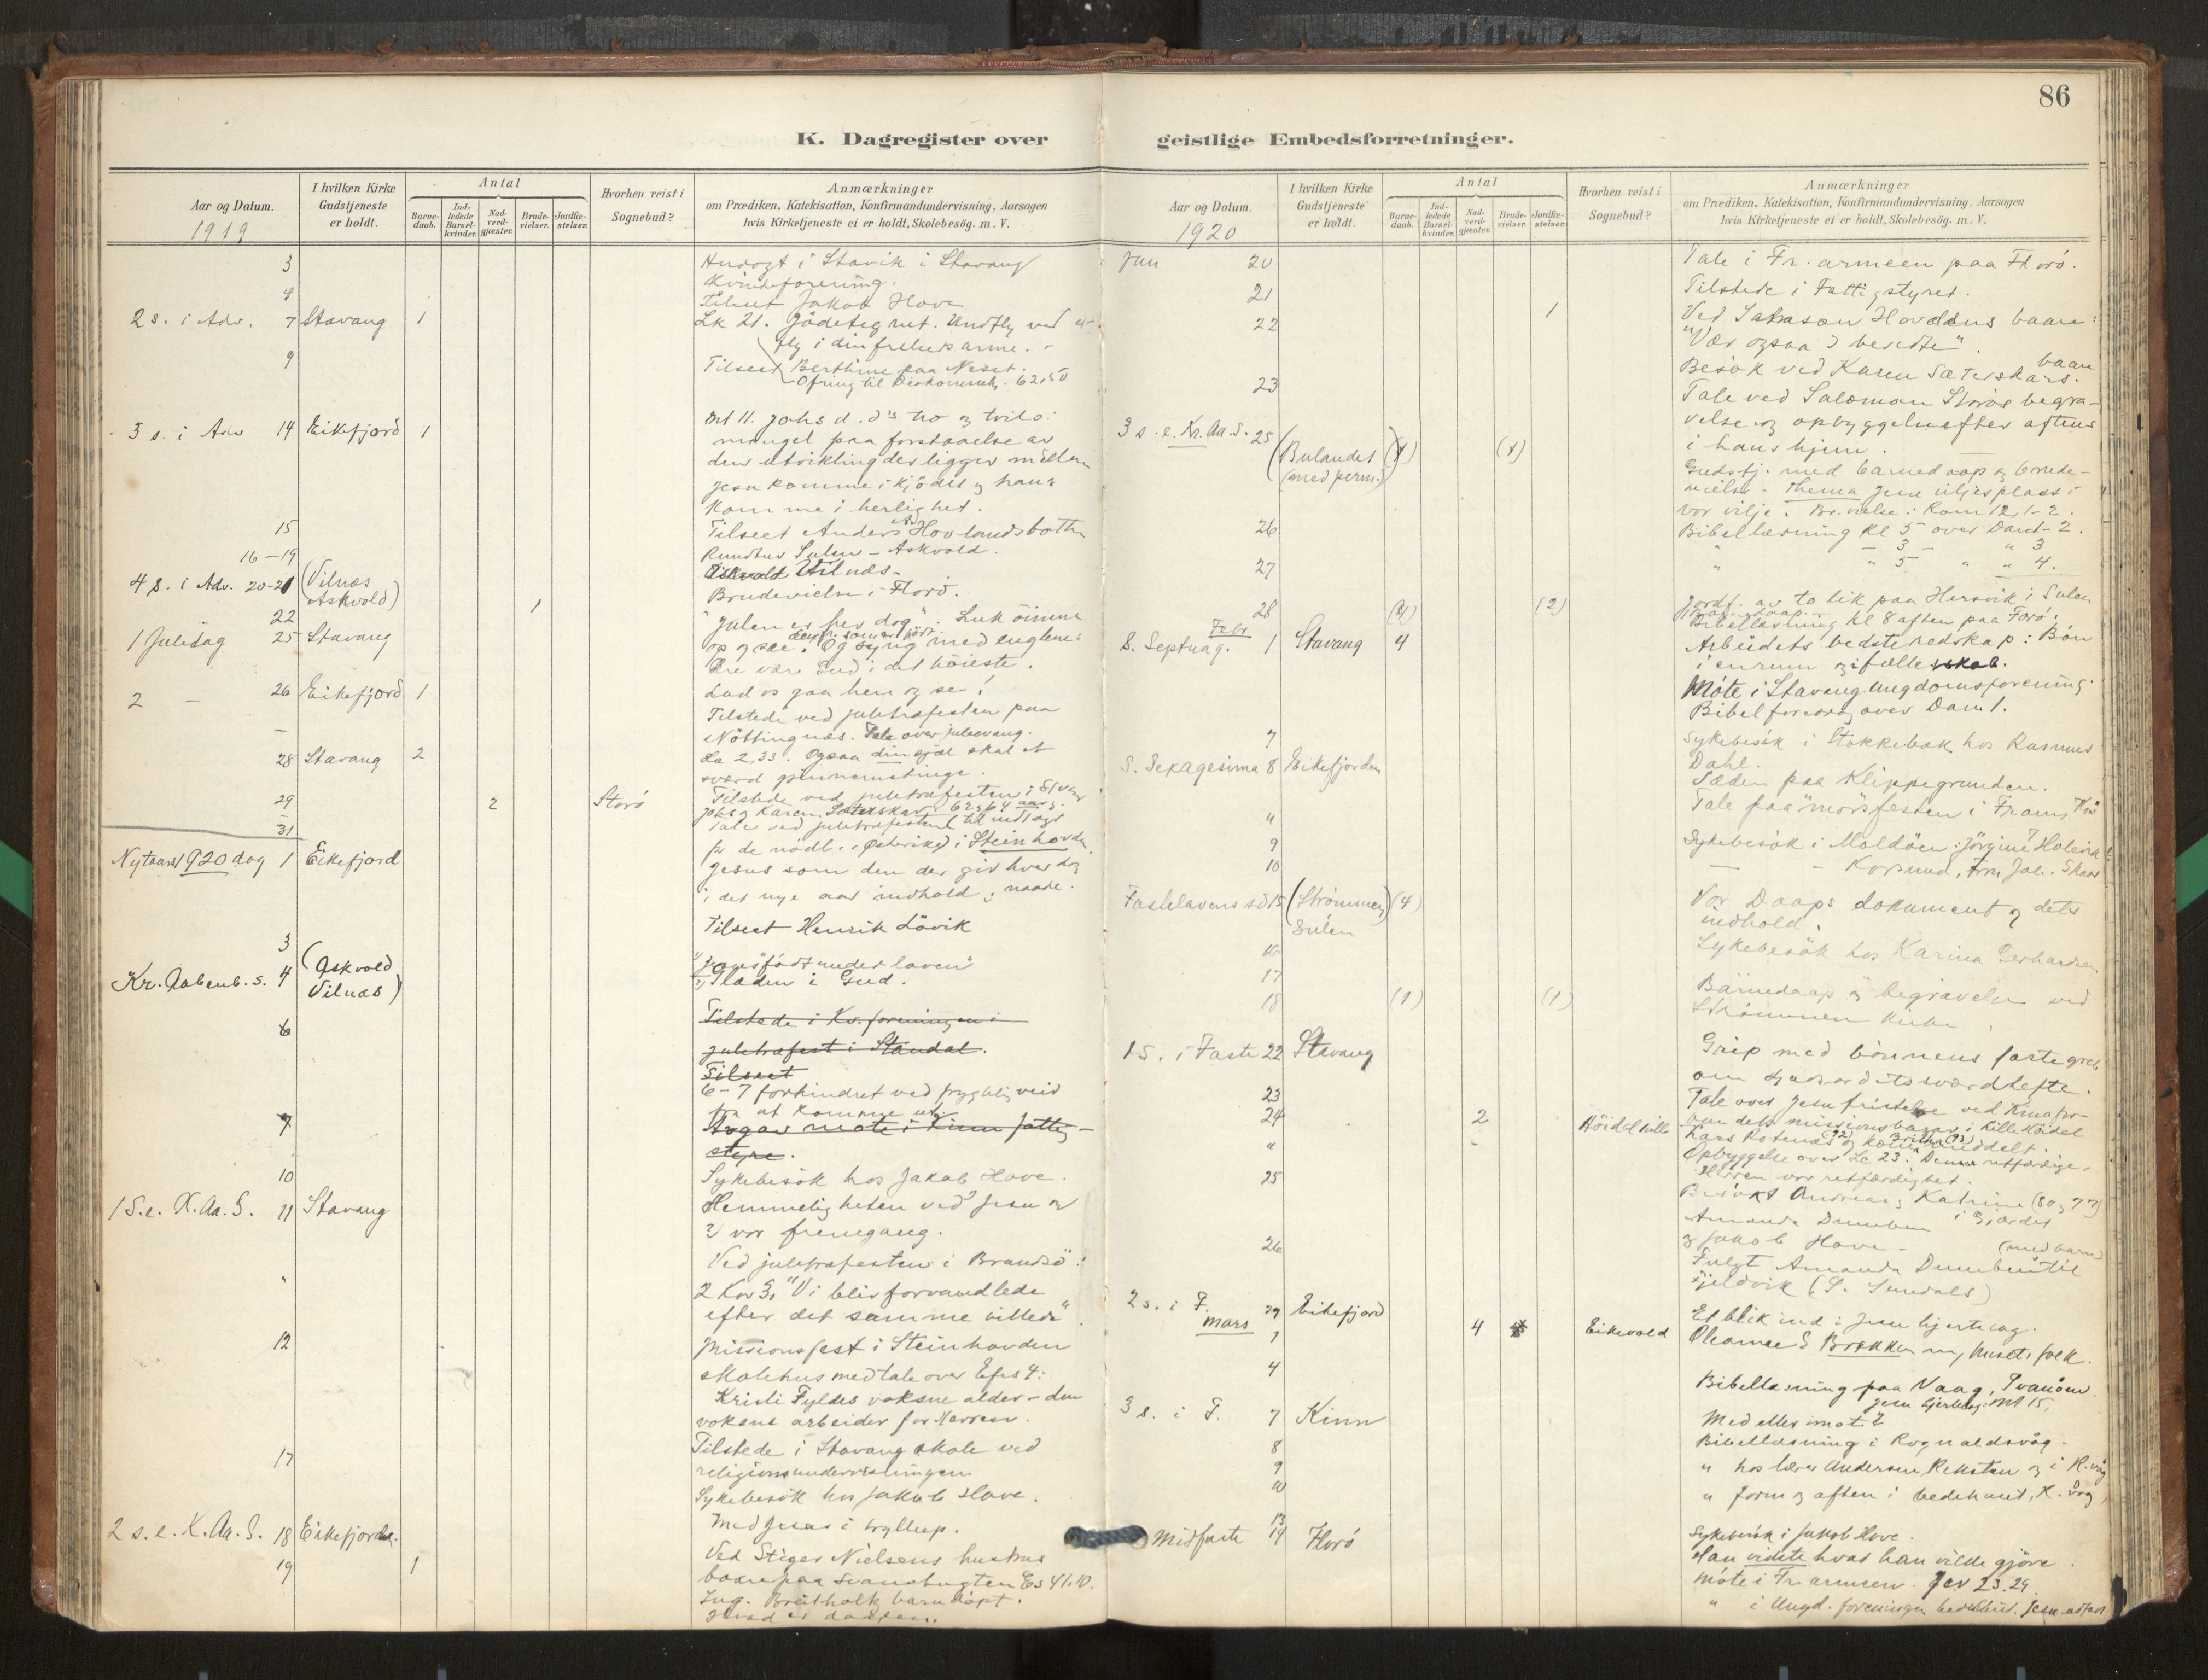 86
K. Dagregister over geistlige Embedsforretninger.
Aar og Datum.
1919
I hvilken Kirke
Gudstjeneste
er holdt.
Antal
Barne-
daab.
Ind-
ledede
Barsel-
kvinder.
Nad-
verd-
gjæster.
Brude-
vielser.
Jordfæ-
stelser.
Hvorhen reist i
Sognebud?
Anmærkninger
om Prædiken, Katekisation, Konfirmandundervisning, Aarsagen
hvis Kirketjeneste ei er holdt, Skolebesög. m. V.
3 Andagt i Stavik i Stavang
Kvindeforening.
4 Tilseet Jakob Hove
2 s. i Adv. 7 Stavang 1 Lk 21. Jödetegnet. Undfly ved
fly i din frelsers arme. -
9 Tilseet Berthine paa Neset.
Ofring til 62,50
3 s. i Adv 14 Eikefjord 1 Mt 11. Johs d. d's tro og tvil:
mangel paa forstaaelse av
den utvikling der ligger mellem
Jesu komme i kjödet og hans
komme i herlighet.
15 Tilseet Anders Hovlandsbotn
16-19 Rundtur Sulen - Askvold.
4 s. i Adv. 20-21 (Vilnæs
Askvold) Vilnæs-
22 1 Brudevielse i Florö.
1 Juledag 25 Stavang "Julen er hver dag". Luk öinene
op og see. Og syng med englene:
Ære være Gud i det höieste.
2 - 26 Eikefjord 1 Lad os gaa hen og se!
Tilstede ved juletræfesten paa
- Nöttingnæs. Tale over juleevang.
28 Stavang 2 Lc 2,33. Ogsaa din sjæl skal et
sværd gjennemstinge.
29 2 Storö Tilstede ved juletræfesten i
Johs og Karen Sæterskar. 62 og 64 aar.
31 Tale ved juletræfesten til indtægt
for de nödl. i Österike i Steinhovden
Nytaars 1920 dag 1 Eikefjord Jesus som den der gir hver dag
i det nye aar indhold og naade.
3 Tilseet Henrik Lövik
Kr. Aabenb. s. 4 (Askvold
Vilnæs) "Jesus född under loven"
Glæden i Gud.
6 Tilstede i Kv.foreningen i
juletræfest i Standal.
Tilseet
6-7 forhindret ved frygtelig veir
fra at komme ut.
7 Avgav möte i Kinn fattig-
styre.
10 Sykebesök hos Jakob Hove.
1 S.e. K. Aa. S. 11 Stavang Hemmeligheten ved Jesu og
2) vor fremgang.
" Ved juletræfesten i Brandsö:
2 Kor 3, "Vi blir forvandlede
efter det samme billede".
12 Missionsfest i Steinhovden
skolehus med tale over Efes 4:
Kristi Fyldes voksne alder - den
voksne arbeider for Herren.
17 Tilstede i Stavang skole ved
religionsundervisningen
Sykebesök hos Jakob Hove.
2 s. e. K. Aa. S. 18 Eikefjord. Med Jesus i bryllup.
19 1 Ved Stiger Nielsens hustrus
baare paa Svanöbugten Es 41.10.
Ing. Breitholtz barn döpt.
Hvad er daaben.
Aar og Datum.
1920
I hvilken Kirke
Gudstjeneste
er holdt.
Antal
Barne-
daab.
Ind-
ledede
Barsel-
kvinder.
Nad-
verd-
gjæster.
Brude-
vielser.
Jordfæ-
stelser.
Hvorhen reist i
Sognebud?
Anmærkninger
om Prædiken, Katekisation, Konfirmandundervisning, Aarsagen
hvis Kirketjeneste ei er holdt, Skolebesög. m. V.
Jan 20 Tale i Fr. armeen paa Florö.
21 Tilstede i Fattigstyret.
22 1 Ved Hovdens baare:
"Vær ogsaa I beredte".
Besök ved Karen Sæterskars. baare
23 Tale ved Salomon Storös begra-
velse og opbyggelse efter aftens
i hans hjem.
3 s. e. Kr. Aa. S. 25 (Bulandet
(med perm.) (1) (1) Gudstj. med barnedaap og brude-
vielse - Thema Jesu viljes plass i
vor vilje. Br.vielse: Rom 12, 1-2.
26 Bibellæsning kl 5 over Daniel 2.
" - 3 - " 3
27 " " 5 " " 4.
28 (2) Jordf. av to lik paa Hersvik i Sulen
Barnedaap.
Bibellæsning kl 8 aften paa Florö.
Febr
S. Septuag. 1 Stavang 4 Arbeidets bedste redskap: Bön
i enrum og i fællesskab.
Möte i Stavang Ungdomsforening
Bibelforedrag over Dan 1.
7 Sykebesök i Stokkebæk hos Rasmus
Dahl.
S. Sexagesima 8 Eikefjorden Sæden paa Klippegrunden.
" Tale paa "morsfesten i Fram,
9 Sykebesök i Moldöen: Jörgine Holevik
10 - - Korsund,
Fastelavens sö 15 (Strömmen)
Sulen (4) Vor Daaps dokument og dets
indhold.
16 Sykebesök hos Karina Gerhardsen
17
18 (1) (1) Barnedaap og begravelse ved
Strömmen Kirke.
1 S. i Faste 22 Stavang Grip med bönnens faste greb
om Guds ords sværdhefte.
23 Tale over Jesu fristelse ved Kinafor-
24 2 Höidal lille bundets missionsbasar i Lille Höidal
Lars Rotenæs (92) og kone Britha (93) meddelt.
" Opbyggelse over Lc 23: Denne retfærdige.
Herren vor retfærdighet.
25 Besökt Andreas og Katrine (80 og 77)
Amanda Dunuben i Gjærdet
og Jakob Hove - (med barn)
26 Fulgt Amanda Dunuben til
Fjeldvik (S. Sundals)
2 s. i F. 29 Eikefjord Et blik ind i Jesu hjertelag.
mars 1 4 Eikevold Oleanne S Brekken og husets folk.
4 Bibellæsning paa Vaag, Svanöen.
Jesu hjertelag. Mt 15.
3 s. i F. 7 Kinn Med eller imot?
8 Bibellæsning i Rognaldsvåg.
9 " hos lærer Andersen, Reksten og i R.våg
10 " form og aften i bedehuset, K. våg
13 Sykebesök i Jakob Hove.
Midfaste 14 Florö Han vidste hvad han vilde gjöre.
Möte i Fr. armeen. Jer 23.29.
" i Ungd. foreningen bedehus.